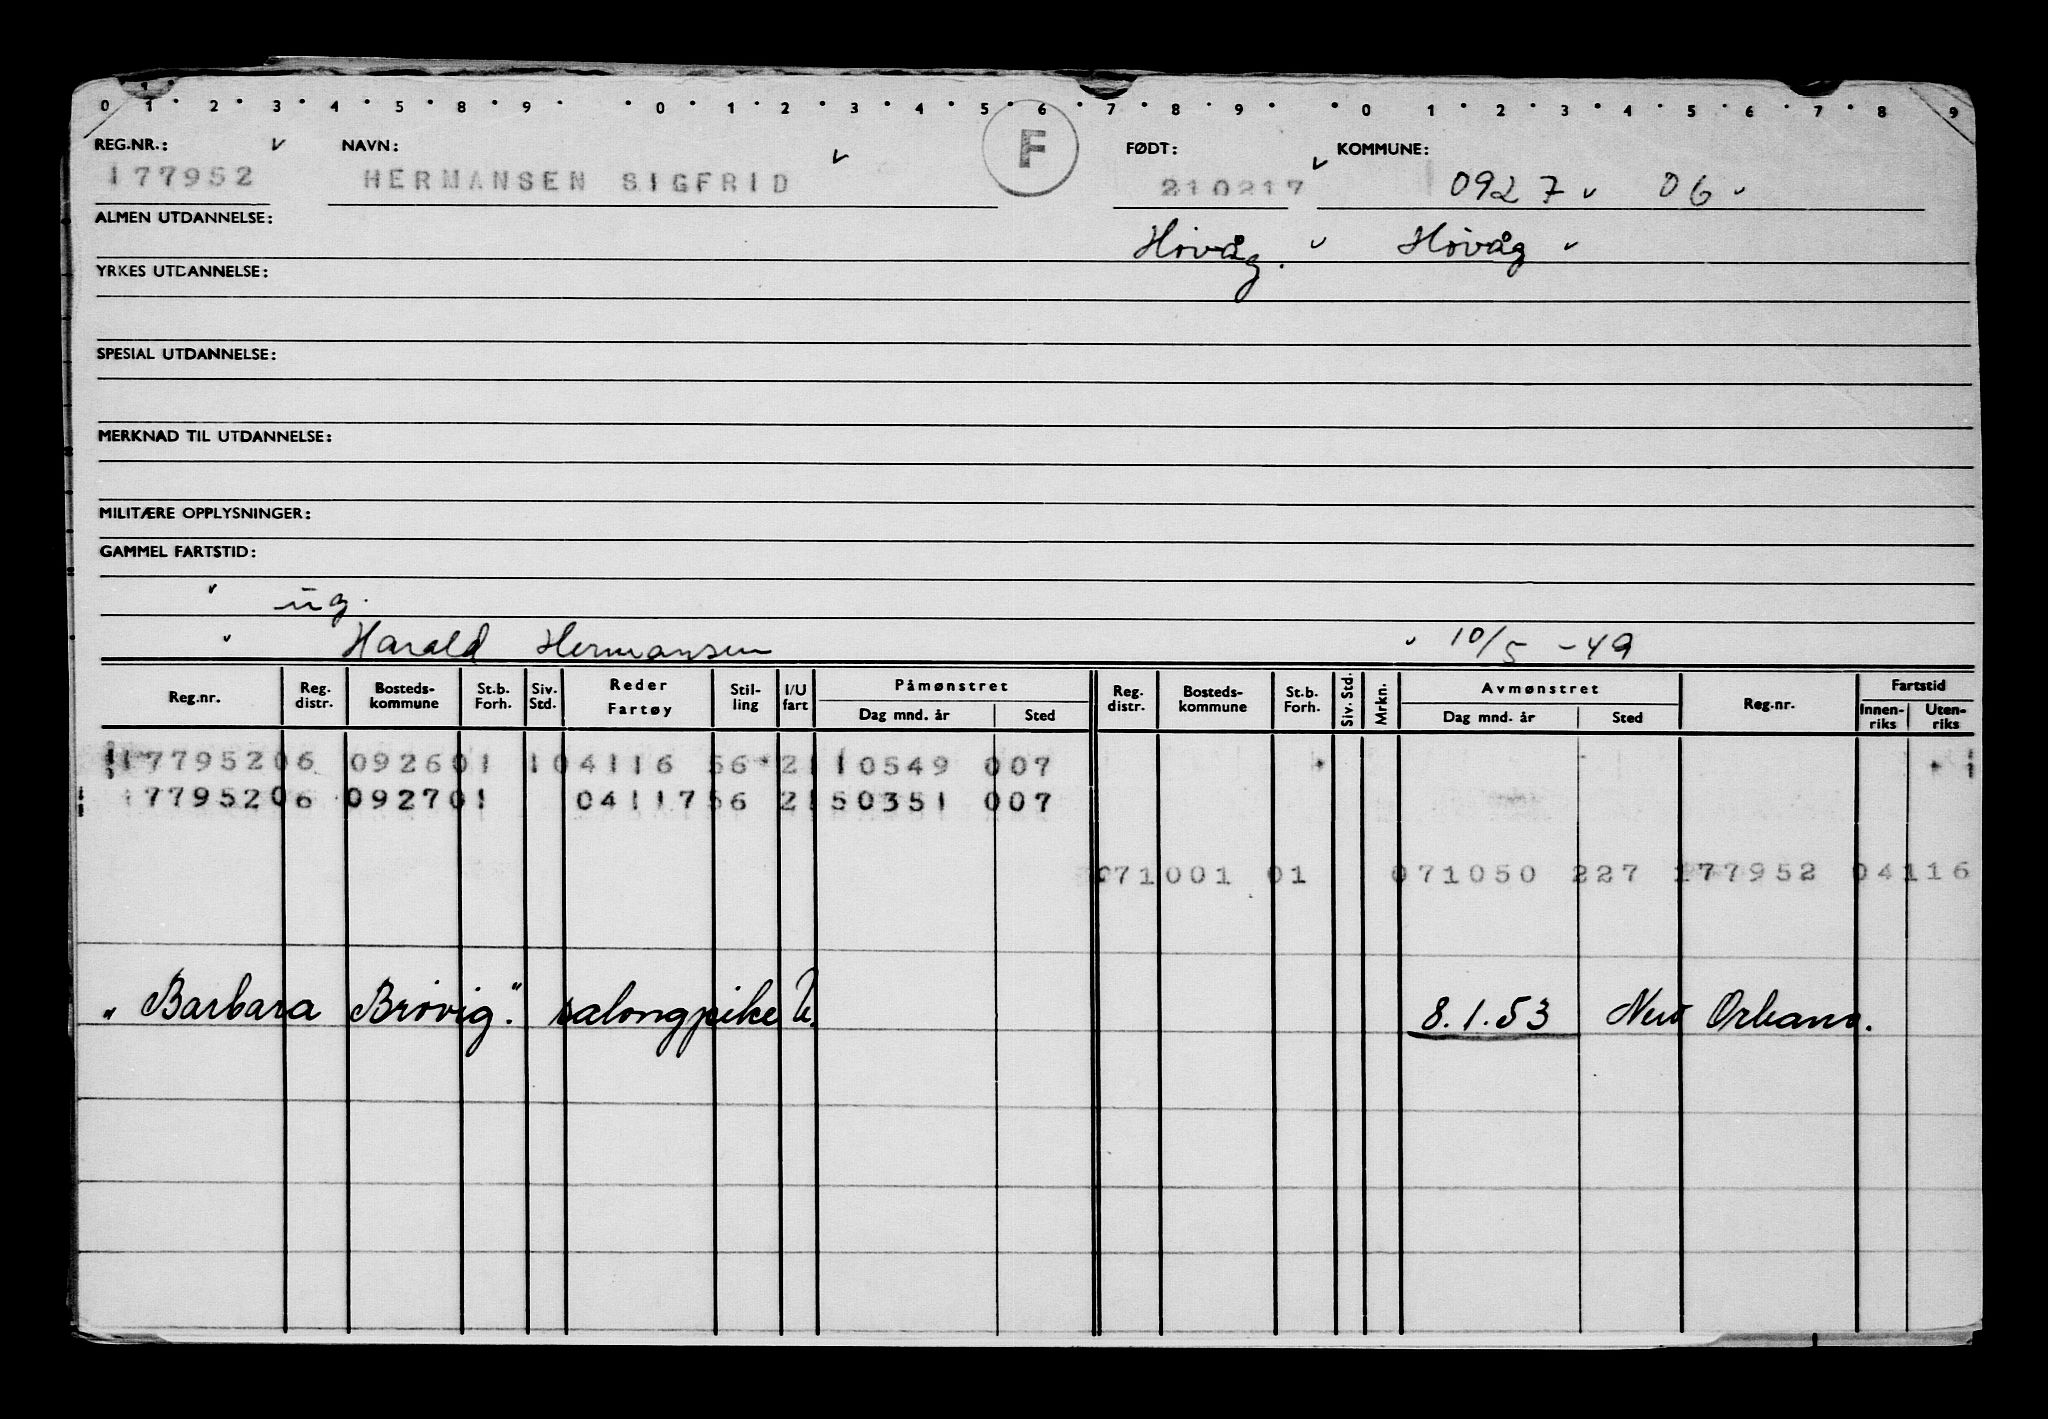 0 1 2 3 4 5 8 9 0 1 2 3 4 5 6 7 8 9 0 1 2 3 4 5 6 7 8 9
REG.NR.: NAVN: F FØDT: KOMMUNE:
177952 HERMANSEN SIGFRID 210217 0927 06
ALMEN UTDANNELSE: Høvåg. Høvåg
YRKES UTDANNELSE:
SPESIAL UTDANNELSE:
MERKNAD TIL UTDANNELSE:
MILITÆRE OPPLYSNINGER:
GAMMEL FARTSTID:
ug.
Harald Hermansen 10/5 -49
Reg.nr. Reg. distr. Bosteds-kommune St.b. Forh. Siv. Std. Reder Fartøy Stil-ling I/U fart Påmønstret Dag mnd. år Sted Reg. distr. Bosteds-kommune St.b. Forh. Siv. Std. Mrkn. Avmønstret Dag mnd. år Sted Reg.nr. Fartstid Innen-riks Uten-riks
17795206 092601 104116 56 2110549 007
17795206 092701 0411756 2150351 007
071001 01 071050 227 177952 04116
„Barbara Brøvig." salongpike U. 8.1.53 New Orleans.